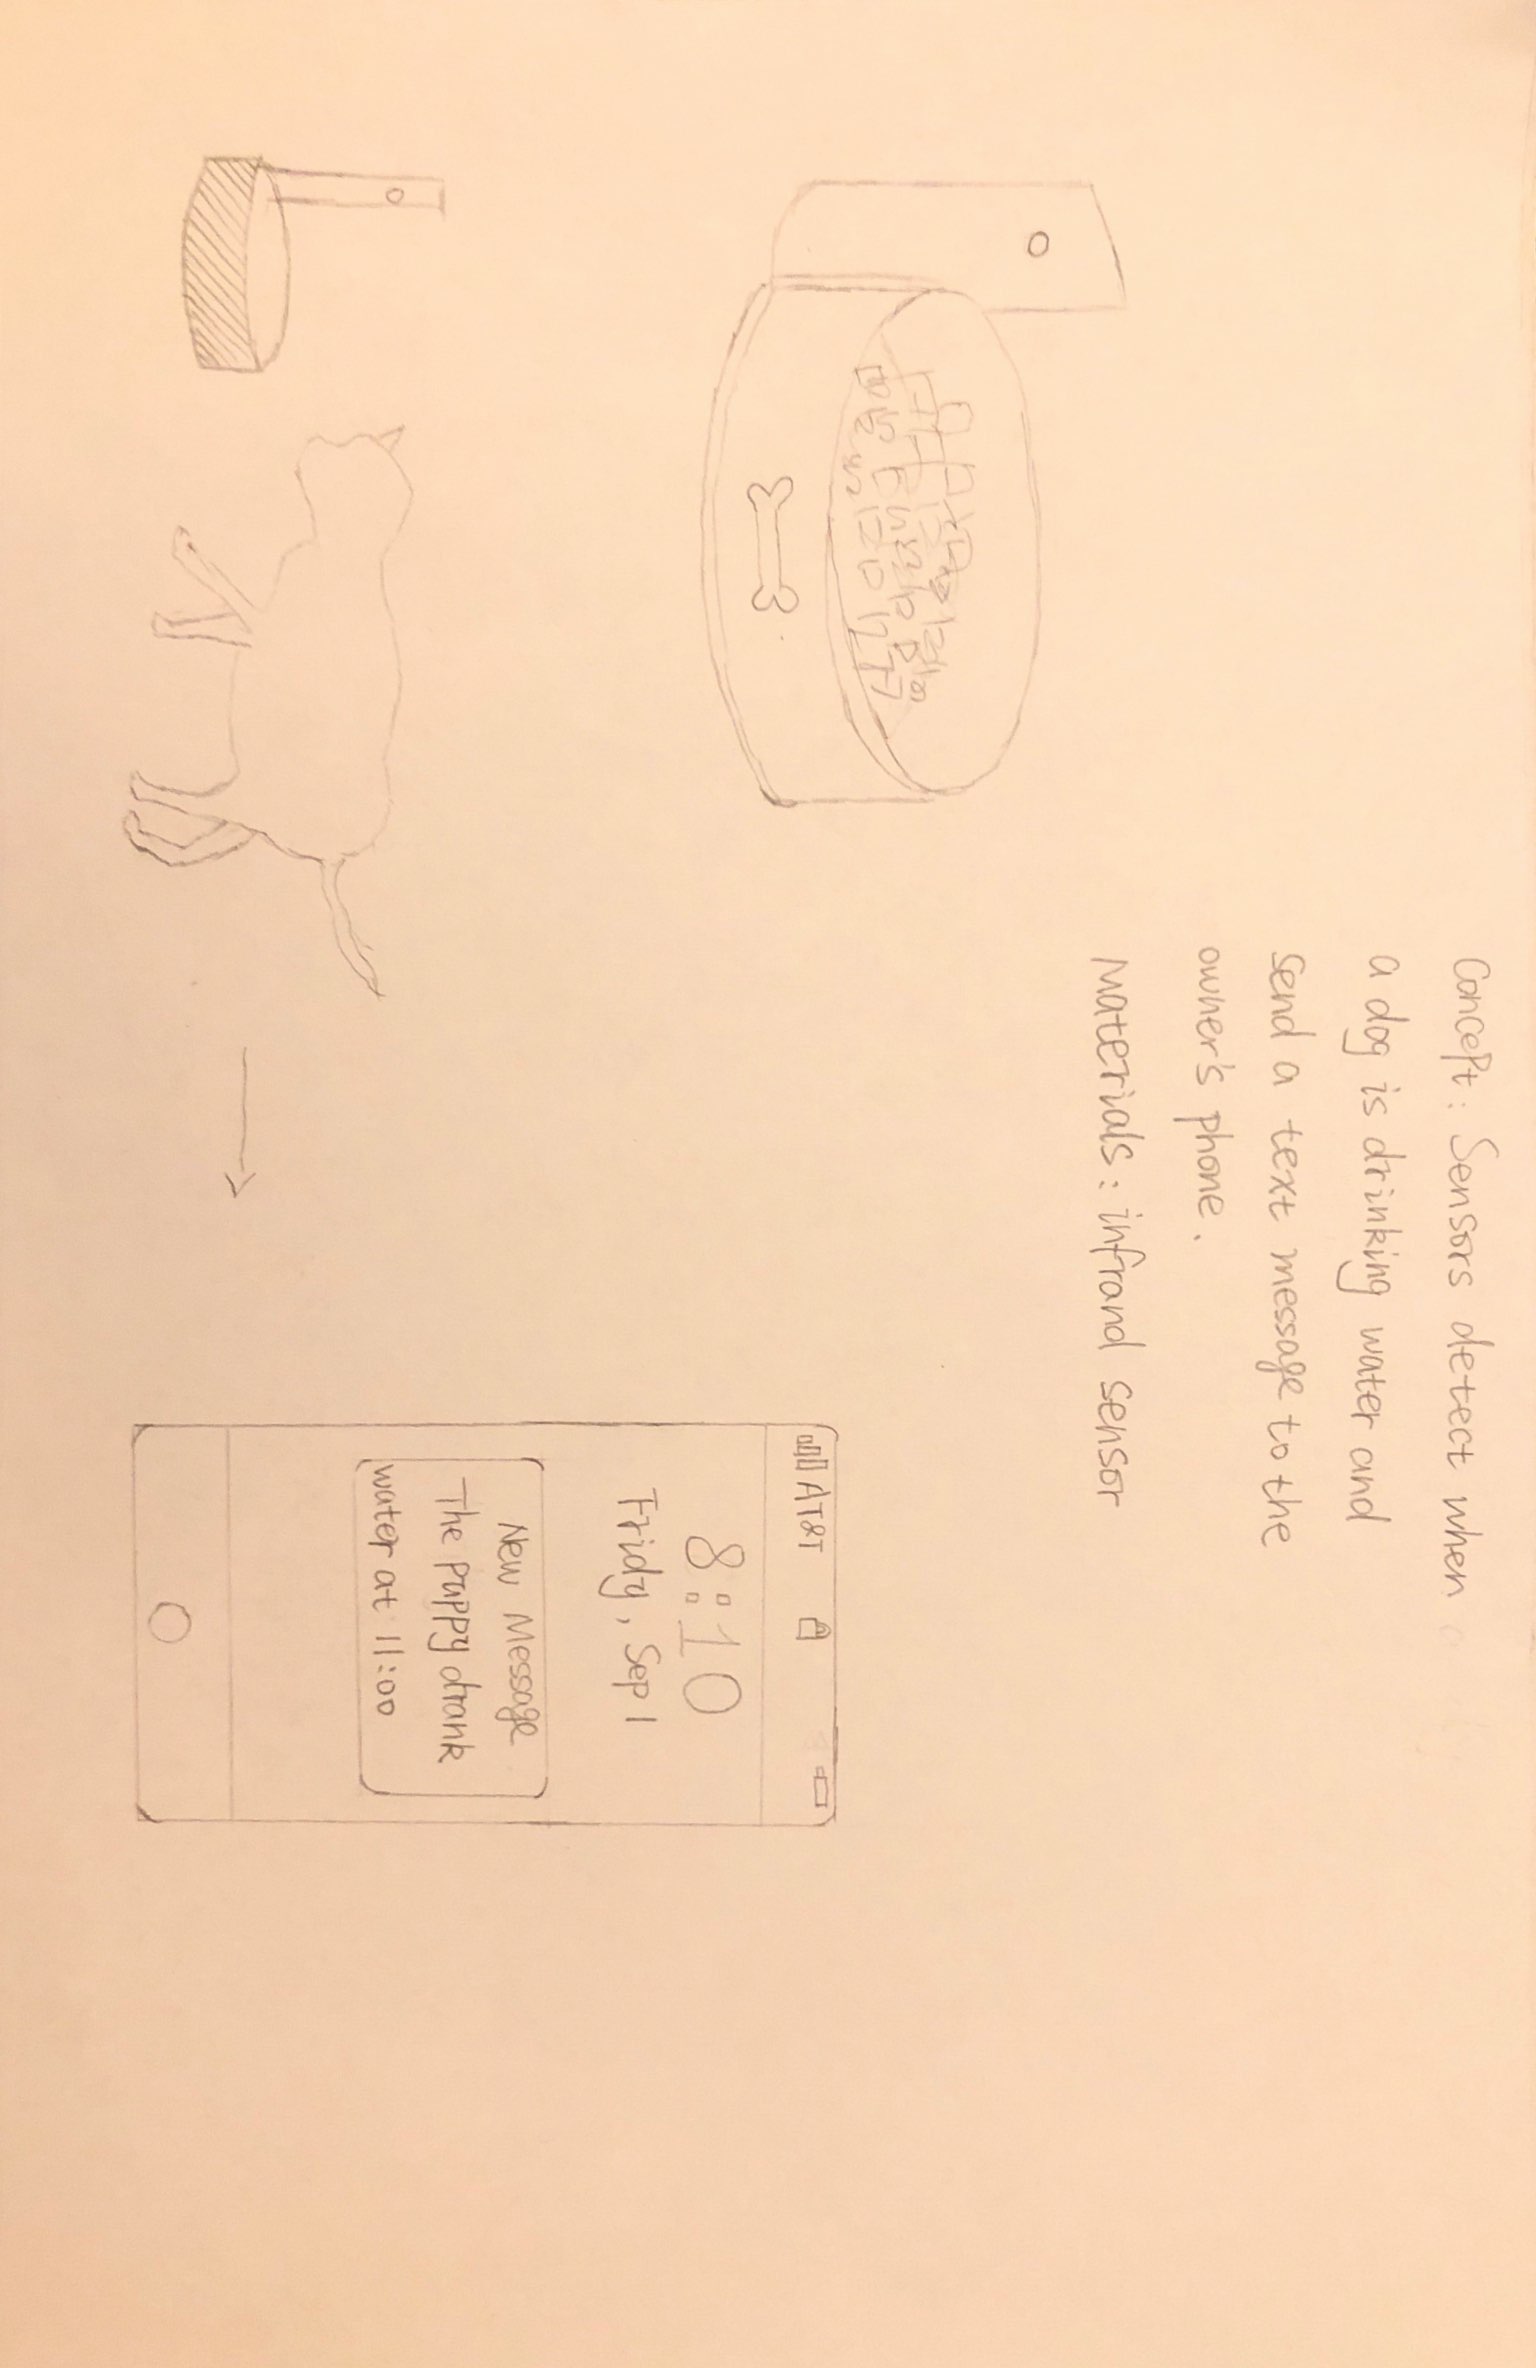 Concept: Sensors detect when
a dog is drinking water and
send a text message to the
owner's phone.
Materials: infrand sensor
AT&T
8:10
Fridy, Sep 1
New Message
The puppy drank
water at 11:00